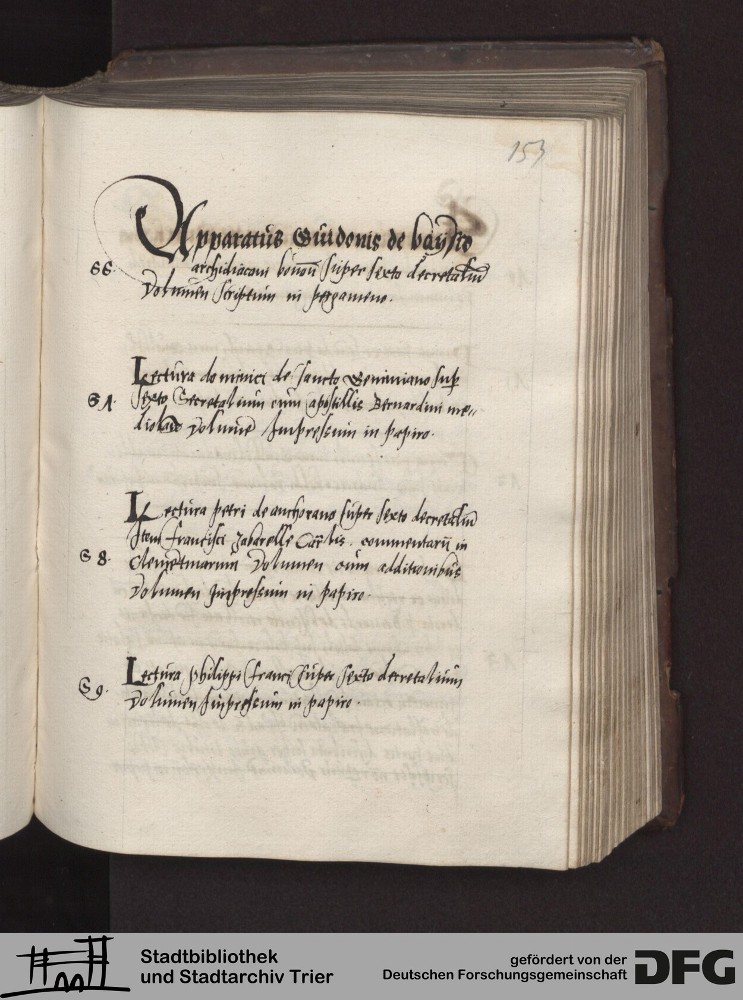 153
Apparatus Guidonis de baysio
S6. archidiaconi bonon̄ super sexto decretaliū
Volumen scriptum in pergameno.
Lectura dominici de sancto Geminiano sup̄
SΛ. sexto Decretalium cum apostillis Bernardini me„
diolan̄ Volumē Impressum in papiro.
Lectura petri de anchorano super sexto decretaliū
Item francisci Zabarelle Car̄lis. commentarij in
S8. Clementinarum Volumen cum additionibus
Volumen Impressum in papiro.
Lectura philippi franci super sexto decretalium
S9. Volumen Impressum in papiro.
Stadtbibliothek
und Stadtarchiv Trier
gefördert von der
Deutschen Forschungsgemeinschaft
DFG